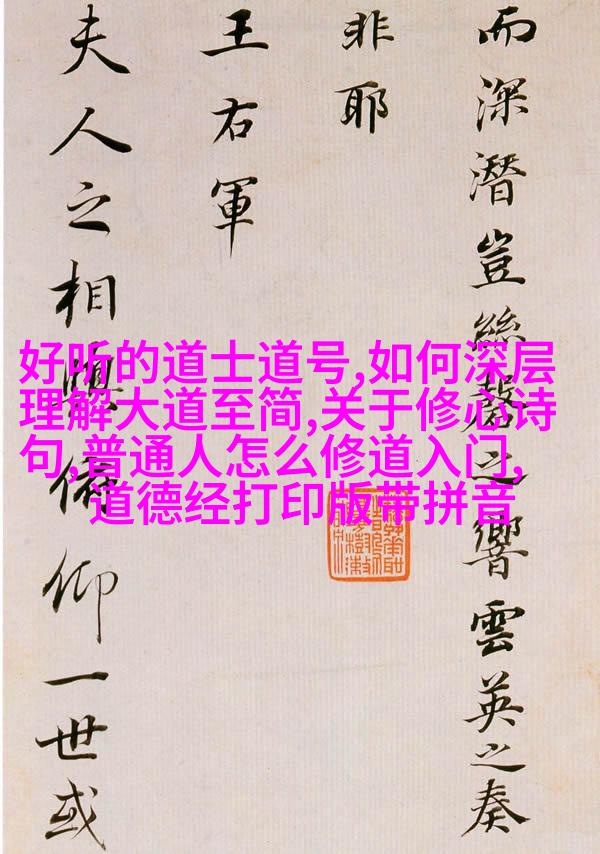 而深潛豈絲磬之響雲英之奏
非耶
王右軍
夫人之相與俯仰一世或
好听的道士道号,如何深层
理解大道至简,关于修心诗
句,普通人怎么修道入门,
道德经打印版带拼音